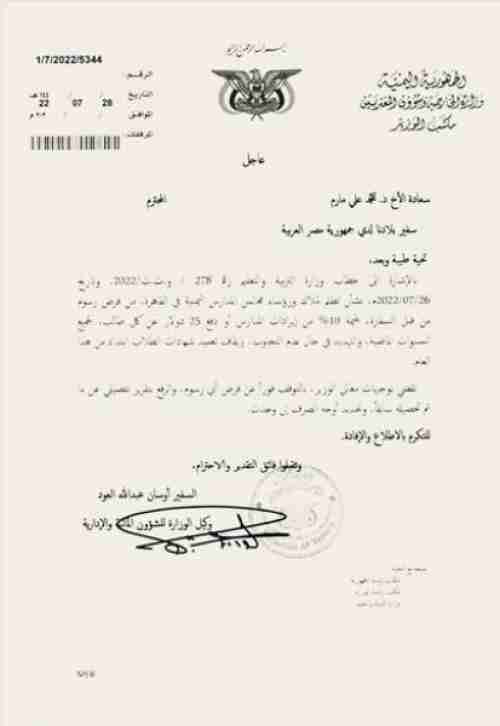 بسم الله الرحمن الرحيم
الجمهورية اليمنية
وزارة الخارجية وشؤون المغتربين
مكتب الوزير
الرقم:
1/7/2022/5344
التاريخ / / ١٤٤ هـ
22 07 28
الموافق / / ٢٠٢ م
المرفقات:
عاجل
سعادة الأخ د. محمد علي مارم المحترم
سفير بلادنا لدى جمهورية مصر العربية
تحية طيبة وبعد،
بالإشارة الى خطاب وزارة التربية والتعليم رقم 278 / و.ت.ت/2022، وتاريخ
2022/07/26م، بشأن تظلم ملاك ورؤساء مجلس المدارس اليمنية في القاهرة، من فرض رسوم
من قبل السفارة، بنسبة 10% من إيرادات المدارس أو دفع 25 دولار عن كل طالب، لجميع
السنوات الماضية، والتهديد في حال عدم التجاوب، بإيقاف تعميد شهادات الطلاب ابتداء من هذا
العام.
تقضي توجيهات معالي الوزير، بالتوقف فوراً عن فرض أي رسوم، والرفع بتقرير تفصيلي عن ما
تم تحصيله سابقاً، وتحديد أوجه الصرف إن وجدت.
للتكرم بالاطلاع والإفادة.
وتقبلوا فائق التقدير والاحترام،
السفير أوسان عبدالله العود
وكيل الوزارة للشؤون المالية والإدارية